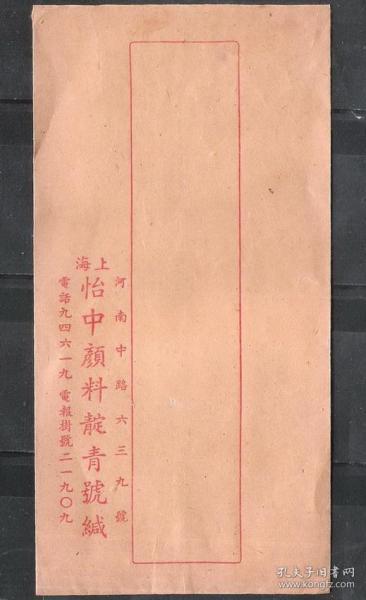 河南中路六三九號
上海
怡中顏料靛青號緘
電話九四六一九 電報掛號二一九〇九
孔夫子旧书网
www.kongfz.com